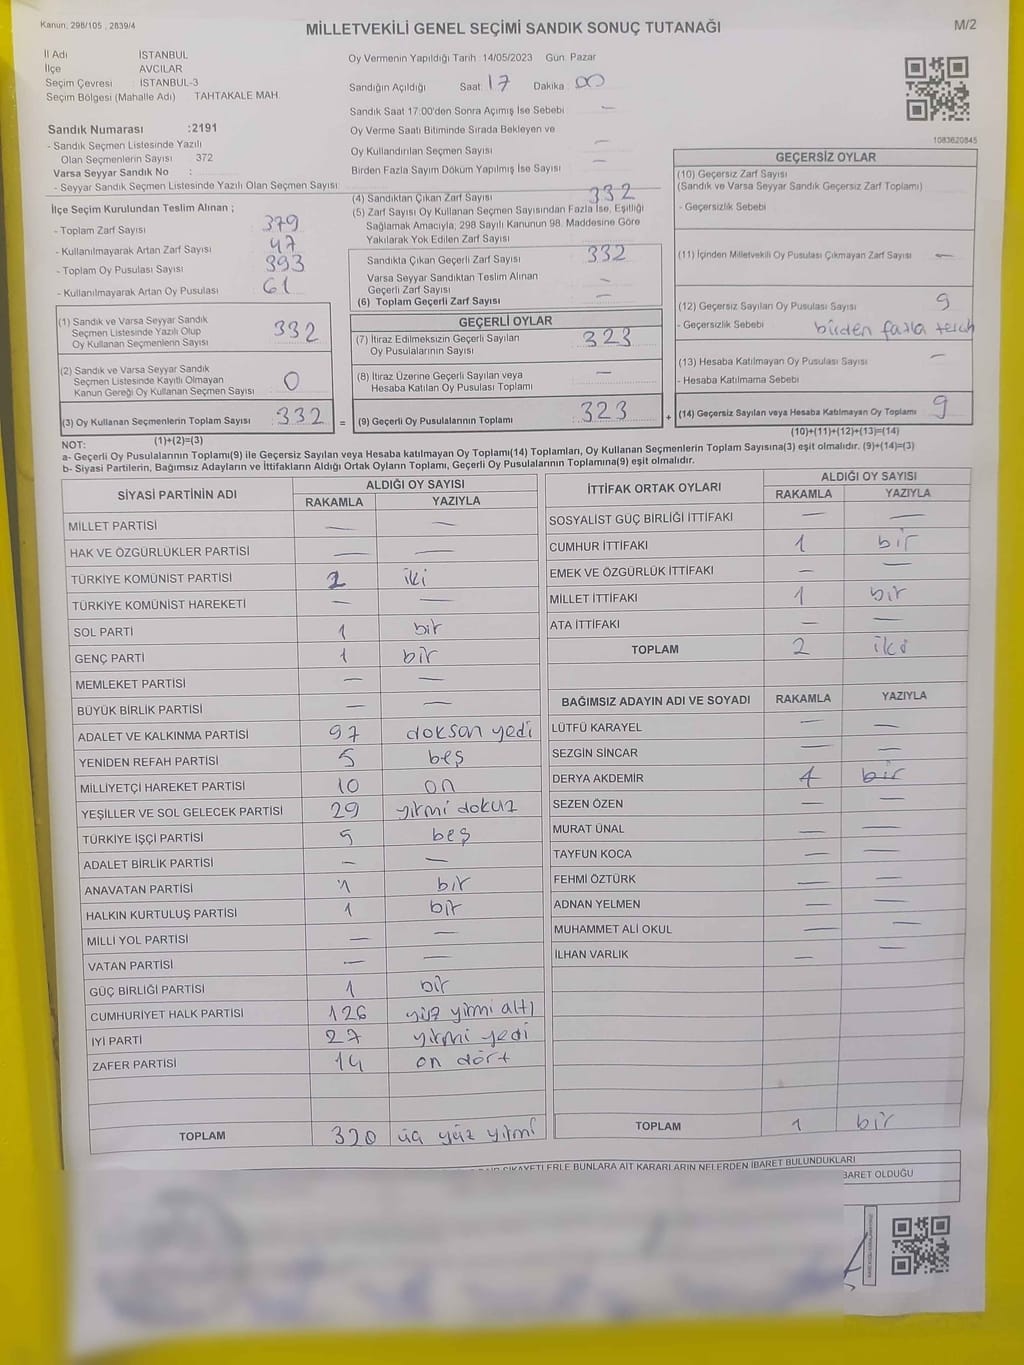 Kanun: 298/105 , 2839/4
MİLLETVEKİLİ GENEL SEÇİMİ SANDIK SONUÇ TUTANAĞI
M/2
İl Adı İSTANBUL
İlçe AVCILAR
Seçim Çevresi : İSTANBUL-3
Seçim Bölgesi (Mahalle Adı) TAHTAKALE MAH.
Oy Vermenin Yapıldığı Tarih : 14/05/2023 Gün: Pazar
Sandığın Açıldığı Saat: 17 Dakika 00
Sandık Saat 17:00'den Sonra Açımış İse Sebebi —
Oy Verme Saati Bitiminde Sırada Bekleyen ve
Oy Kullandırılan Seçmen Sayısı —
Birden Fazla Sayım Döküm Yapılmış İse Sayısı —
Sandık Numarası :2191
- Sandık Seçmen Listesinde Yazılı
Olan Seçmenlerin Sayısı : 372
Varsa Seyyar Sandık No :
- Seyyar Sandık Seçmen Listesinde Yazılı Olan Seçmen Sayısı:
1083620845
İlçe Seçim Kurulundan Teslim Alınan ;
- Toplam Zarf Sayısı 379
- Kullanılmayarak Artan Zarf Sayısı 47
- Toplam Oy Pusulası Sayısı 393
- Kullanılmayarak Artan Oy Pusulası 61
(1) Sandık ve Varsa Seyyar Sandık
Seçmen Listesinde Yazılı Olup
Oy Kullanan Seçmenlerin Sayısı 332
(2) Sandık ve Varsa Seyyar Sandık
Seçmen Listesinde Kayıtlı Olmayan
Kanun Gereği Oy Kullanan Seçmen Sayısı 0
(3) Oy Kullanan Seçmenlerin Toplam Sayısı 332 =
(1)+(2)=(3)
(4) Sandıktan Çıkan Zarf Sayısı 332
(5) Zarf Sayısı Oy Kullanan Seçmen Sayısından Fazla İse, Eşitliği
Sağlamak Amacıyla, 298 Sayılı Kanunun 98. Maddesine Göre
Yakılarak Yok Edilen Zarf Sayısı
Sandıkta Çıkan Geçerli Zarf Sayısı 332
Varsa Seyyar Sandıktan Teslim Alınan
Geçerli Zarf Sayısı —
(6) Toplam Geçerli Zarf Sayısı —
GEÇERLİ OYLAR
(7) İtiraz Edilmeksizin Geçerli Sayılan
Oy Pusulalarının Sayısı 323
(8) İtiraz Üzerine Geçerli Sayılan veya
Hesaba Katılan Oy Pusulası Toplamı —
(9) Geçerli Oy Pusulalarının Toplamı 323 +
GEÇERSİZ OYLAR
(10) Geçersiz Zarf Sayısı
(Sandık ve Varsa Seyyar Sandık Geçersiz Zarf Toplamı)
- Geçersizlik Sebebi
(11) İçinden Milletvekili Oy Pusulası Çıkmayan Zarf Sayısı —
(12) Geçersiz Sayılan Oy Pusulası Sayısı 9
- Geçersizlik Sebebi birden fazla terch
(13) Hesaba Katılmayan Oy Pusulası Sayısı —
- Hesaba Katılmama Sebebi
(14) Geçersiz Sayılan veya Hesaba Katılmayan Oy Toplamı 9
(10)+(11)+(12)+(13)=(14)
NOT:
a- Geçerli Oy Pusulalarının Toplamı(9) ile Geçersiz Sayılan veya Hesaba katılmayan Oy Toplamı(14) Toplamları, Oy Kullanan Seçmenlerin Toplam Sayısına(3) eşit olmalıdır. (9)+(14)=(3)
b- Siyasi Partilerin, Bağımsız Adayların ve İttifakların Aldığı Ortak Oyların Toplamı, Geçerli Oy Pusulalarının Toplamına(9) eşit olmalıdır.
SİYASİ PARTİNİN ADI ALDIĞI OY SAYISI
RAKAMLA YAZIYLA
MİLLET PARTİSİ — —
HAK VE ÖZGÜRLÜKLER PARTİSİ — —
TÜRKİYE KOMÜNİST PARTİSİ 2 iki
TÜRKİYE KOMÜNİST HAREKETİ — —
SOL PARTİ 1 bir
GENÇ PARTİ 1 bir
MEMLEKET PARTİSİ — —
BÜYÜK BİRLİK PARTİSİ — —
ADALET VE KALKINMA PARTİSİ 97 doksan yedi
YENİDEN REFAH PARTİSİ 5 beş
MİLLİYETÇİ HAREKET PARTİSİ 10 on
YEŞİLLER VE SOL GELECEK PARTİSİ 29 yirmi dokuz
TÜRKİYE İŞÇİ PARTİSİ 5 beş
ADALET BİRLİK PARTİSİ — —
ANAVATAN PARTİSİ 1 bir
HALKIN KURTULUŞ PARTİSİ 1 bir
MİLLİ YOL PARTİSİ — —
VATAN PARTİSİ — —
GÜÇ BİRLİĞİ PARTİSİ 1 bir
CUMHURİYET HALK PARTİSİ 126 yüz yirmi altı
İYİ PARTİ 27 yirmi yedi
ZAFER PARTİSİ 14 on dört
TOPLAM 320 üç yüz yirmi
İTTİFAK ORTAK OYLARI ALDIĞI OY SAYISI
RAKAMLA YAZIYLA
SOSYALİST GÜÇ BİRLİĞİ İTTİFAKI — —
CUMHUR İTTİFAKI 1 bir
EMEK VE ÖZGÜRLÜK İTTİFAKI — —
MİLLET İTTİFAKI 1 bir
ATA İTTİFAKI — —
TOPLAM 2 iki
BAĞIMSIZ ADAYIN ADI VE SOYADI RAKAMLA YAZIYLA
LÜTFÜ KARAYEL — —
SEZGİN SİNCAR — —
DERYA AKDEMİR 1 bir
SEZEN ÖZEN — —
MURAT ÜNAL — —
TAYFUN KOCA — —
FEHMİ ÖZTÜRK — —
ADNAN YELMEN — —
MUHAMMET ALİ OKUL — —
İLHAN VARLIK — —
TOPLAM 1 bir
ŞİKAYETLERLE BUNLARA AİT KARARLARIN NELERDEN İBARET BULUNDUKLARI
BARET OLDUĞU